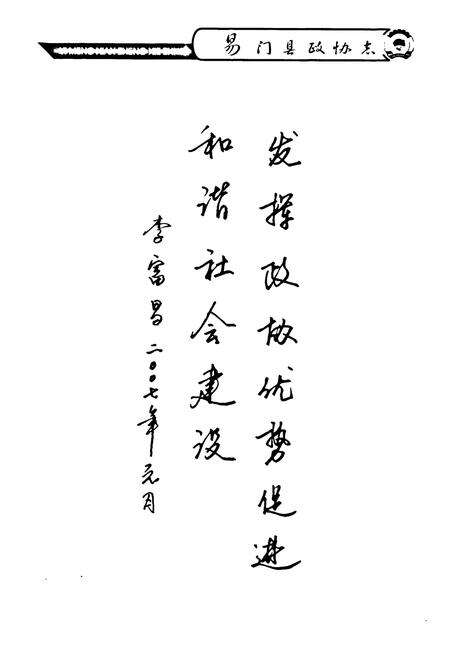 易门县政协志
发挥政协优势促进
和谐社会建设
李富昌二〇〇七年元月